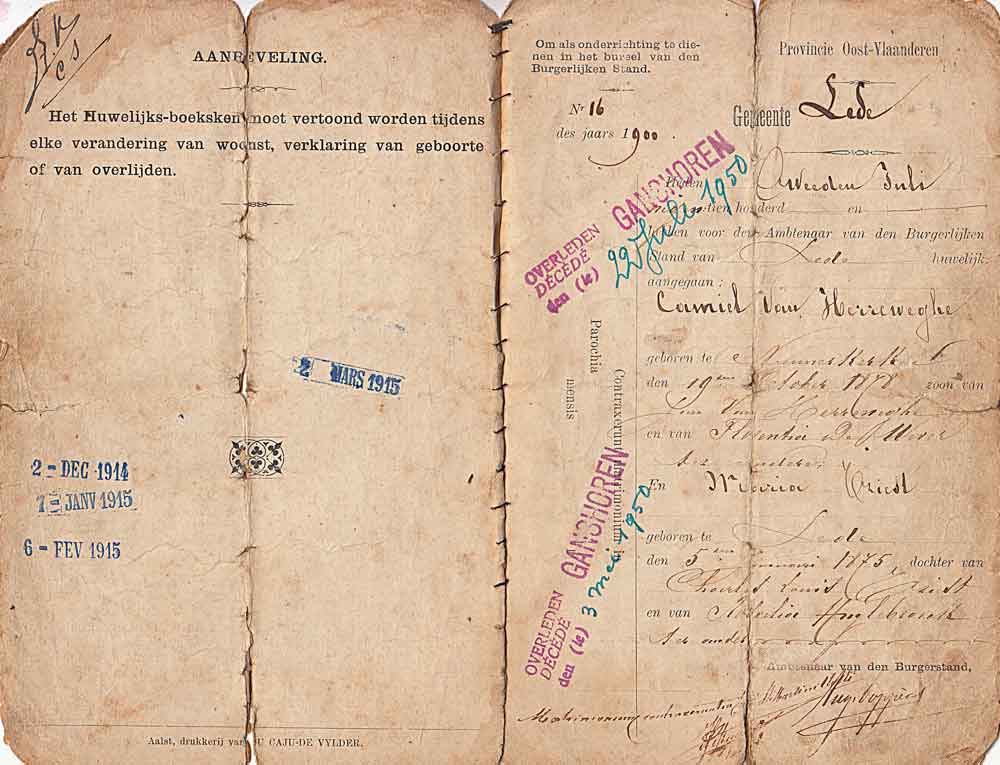 AANBEVELING.
Het Huwelijks-boeksken moet vertoond worden tijdens
elke verandering van woonst, verklaring van geboorte
of van overlijden.
2 MARS 1915
2 - DEC 1914
JANV 1915
6 - FEV 1915
Aalst, drukkerij van DU CAJU-DE VYLDER.
Om als onderrichting te die-
nen in het bureel van den
Burgerlijken Stand.
Nr 16
des jaars 1900.
OVERLEDEN
DÉCÉDÉ
den (le) 22 Juli 1950
GANSHOREN
Parochia
mensis
Contraxerunt matrimonium in
OVERLEDEN
DÉCÉDÉ
den (le) 3 mei 1950
GANSHOREN
Provincie Oost-Vlaanderen
Gemeente Lede
Heden Tweeden Juli
negentien honderd en
hebben voor den Ambtenaar van den Burgerlijken
Stand van Lede huwelijk
aangegaan:
Camiel Van Herreweghe
geboren te
den 19en October 1878 zoon van
Van Herreweghe
en van Florentia De
En Maria Triest
geboren te Lede
den 5en 1875, dochter van
Charles Louis Triest
en van
Ambtenaar van den Burgerstand,